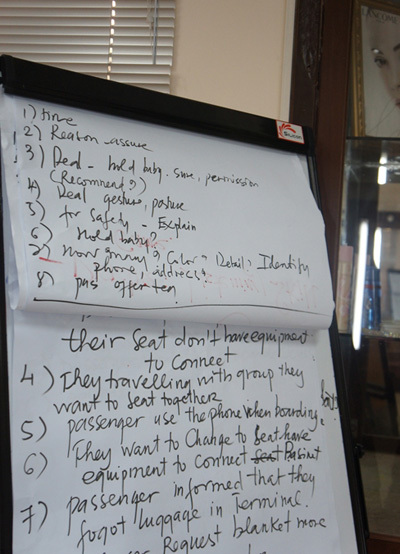 1) time
2) Reason - assure
3) Deal - hold baby. sure, permission
(Recommend?)
4) Deal gesture, posture
5) for safety - Explain
6) hold baby?
7) How many? Color? Detail? Identify
phone, address
8) offer tea
their seat don't have equipment
to connect
4) They travelling with group they
want to seat together
5) passenger use the phone when boarding
6) They want to change to seat have
equipment to connect
7) passenger informed that they
fogot luggage in Terminal.
Request blanket more
LANCOME